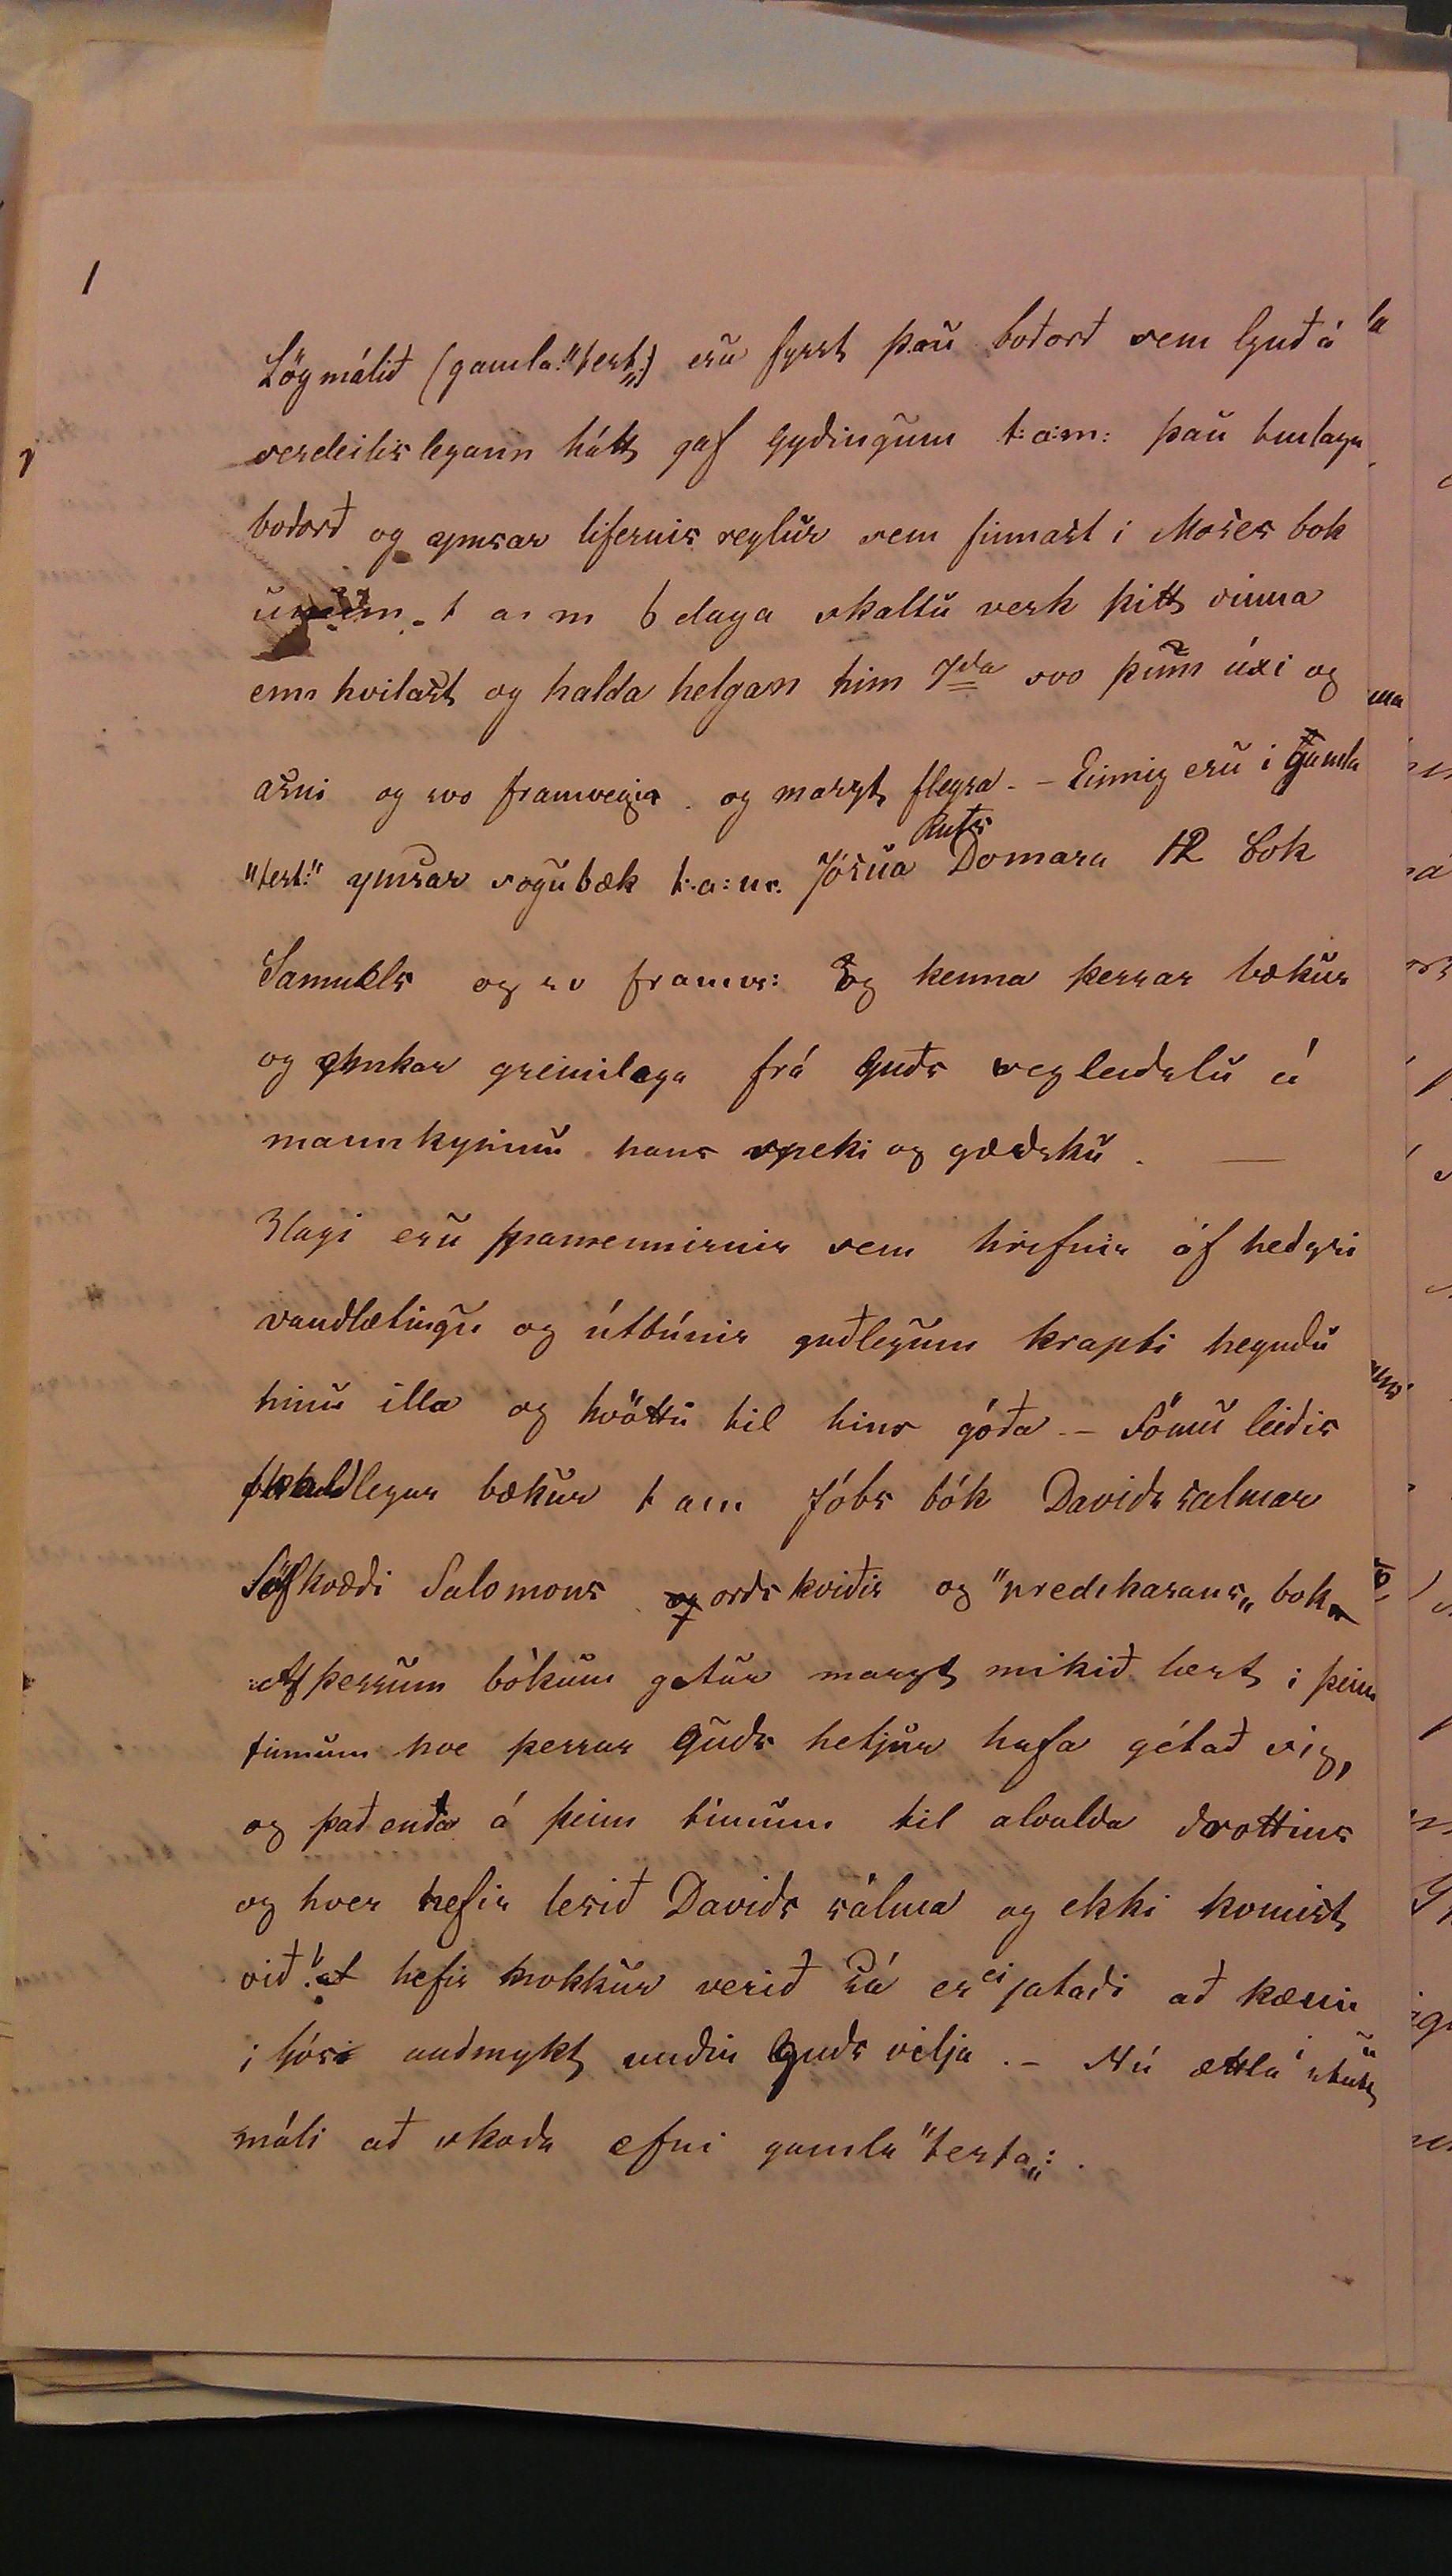 1
Lögmálið (gamla "test„:) eru fyrst þau boðorð sem Guð á
sérdeilislegann hátt gaf Gyðingum t:a:m: þau tmlagu
boðorð og ymsar lifernis reglur sem finnast i Moses bok
unum. t a m 6 daga skaltu verk þitt vinna
enn hvilast og halda helgan hinn 7da svo þinn úxi og
asni og svo framvegis. og margt fleyra. - Einnig eru i Gamla
"test:" ymsar sögubæk t:a:m. Jósúa Ruts Domara 12 bok
Samuels og sv framv: Og kenna þessar bækur
og greinilega frá Guðs vegleiðslu á
mannkyninu hans speki og gædsku. —
3lagi eru spamennirnir sem hrifnir af heðgri
vandlætingu og útbúnir guðlegum krapti hegndu
hinu illa og hvöttu til hins góða - Sömu leiðis
skáldlegar bækur t am Jóbs bók Daviðs salmar
Ljóðkvæði Salomons og orðskviðir og "predikarans„ bok
Af þessum bókum getur margt mikið lært i þeim
timum hve þessar Guðs hetjur hafa gétað sig,
og það enda á þeim tímum til alvalda drottins
og hver hefir lesið Daviðs sálma og ekki komist
við! at hefir nokkur verið sá er ei játaði að kæmi
i ljósi auðmykt undir Guðs vilja. - Nú ættla í stuttu
máli að skoða efni gamla "testa„:.